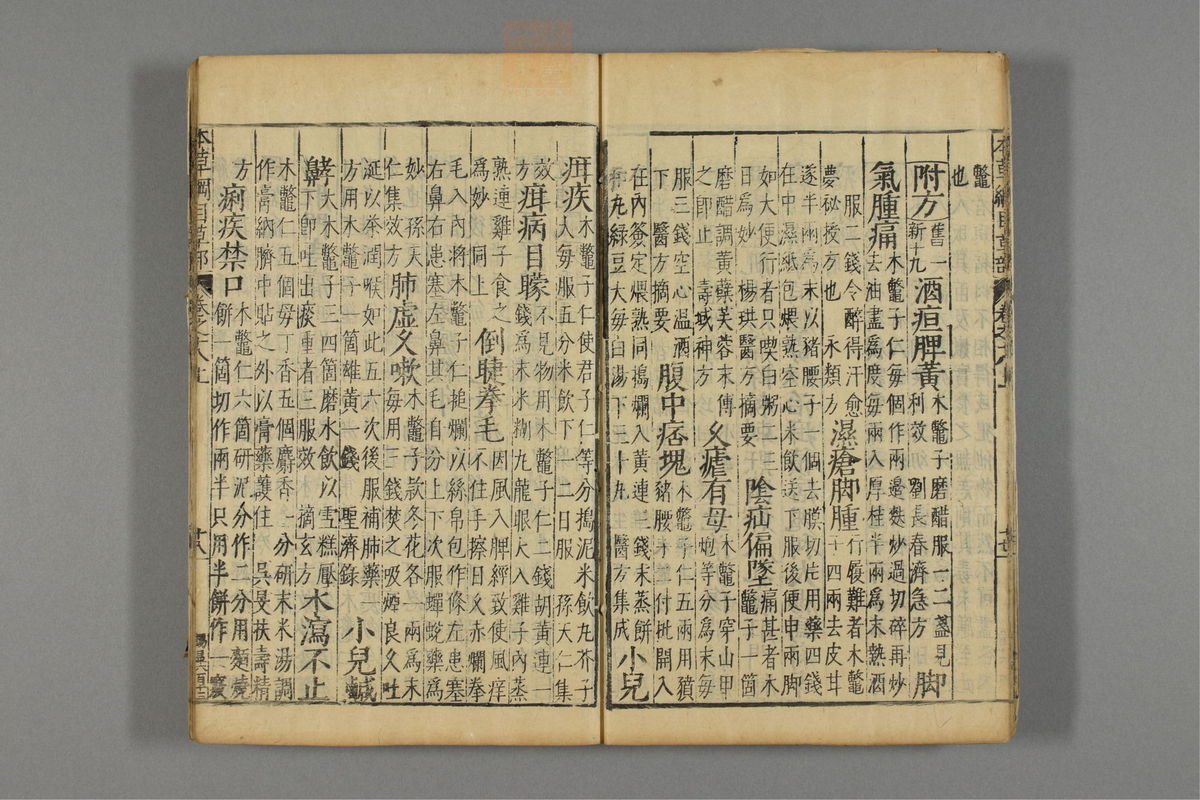 鼈
也
附方舊一新十九酒疸脾黃木鼈子磨醋服一二盞見利效劉長春濟急方脚
氣腫痛木鼈子仁每一個作兩邊麩炒過切碎再炒去油盡爲度每兩入厚桂半兩爲末熱酒
服二錢令醉得汗愈夢祕授方也永類方濕瘡脚腫行履難者木鼈
子四兩去皮甘遂半兩爲末以猪腰子一個去膜切片用藥四錢
在中濕紙包煨熟空心米飲送下服後便伸兩脚
如大便行者只喫白粥二三日爲妙楊珙醫方摘要陰疝偏墜痛甚者木鼈子一箇
磨醋調黃蘗芙蓉末傅之卽止壽域神方久瘧有母木鼈子穿山甲炮等分爲末每
服三錢空心温酒下醫方摘要腹中痞塊木鼈子仁五兩用獖豬腰子二付批開入
在內簽定煨熟同搗爛入黄連三錢末蒸餅
和丸綠豆大每白湯下三十丸醫方集成小兒
疳疾木鼈子仁使君子仁等分搗泥米飲丸芥子大每服五分米飲下一二日服孫天仁集
效方疳病目矇不見物用木鼈子仁二錢胡黄連一錢爲末米糊丸龍眼大入雞子內蒸
熟連雞子食之爲妙同上倒睫拳毛因風入脾經致使風痒不住手擦日久赤爛拳
毛入內將木鼈子仁搥爛以絲帛包作條左患塞
右鼻右患塞左鼻其毛自分上下次服蟬蛻藥爲
妙孫天仁集效方肺虛久嗽木鼈子款冬花各一兩爲末每用三錢焚之吸煙良久吐
涎以茶潤喉如此五六次後服補肺藥一
方用木鼈子一箇雄黄一錢聖濟錄小兒鹹
齁大木鼈子三四箇磨水飲以雪糕壓下卽吐出痰重者三服效摘玄方水瀉不止
木鼈仁五個母丁香五個麝香一分研末米湯調
作膏納臍中貼之外以膏藥護住吳旻扶壽精
方痢疾禁口木鼈仁六箇研泥分作二分用麵燒餅一箇切作兩半只用半餅作一竅
本草綱目草部
卷之十八上